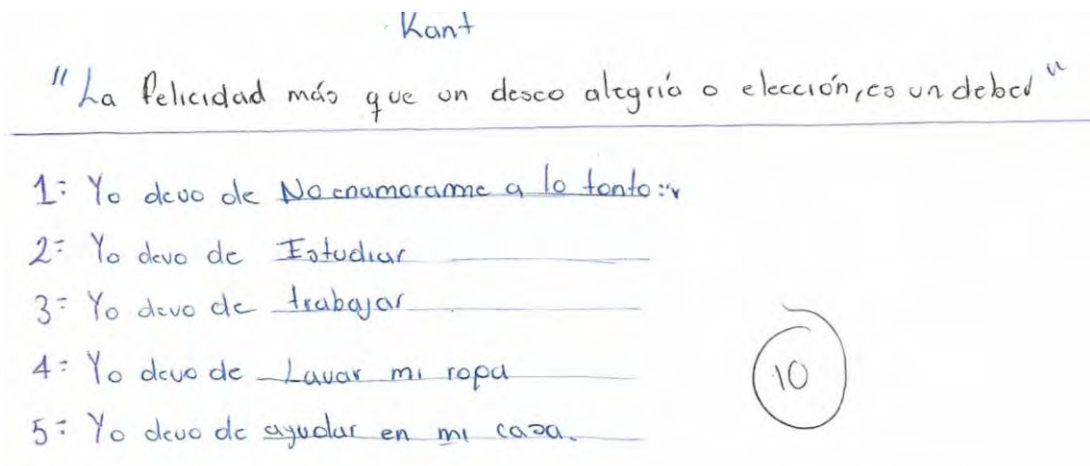 Kant
"La felicidad más que un deseo alegría o elección, es un deber"
1: Yo devo de No enamorarme a lo tonto :v
2: Yo devo de Estudiar
3: Yo devo de trabajar
4: Yo devo de Lavar mi ropa
5: Yo devo de ayudar en mi casa.
10